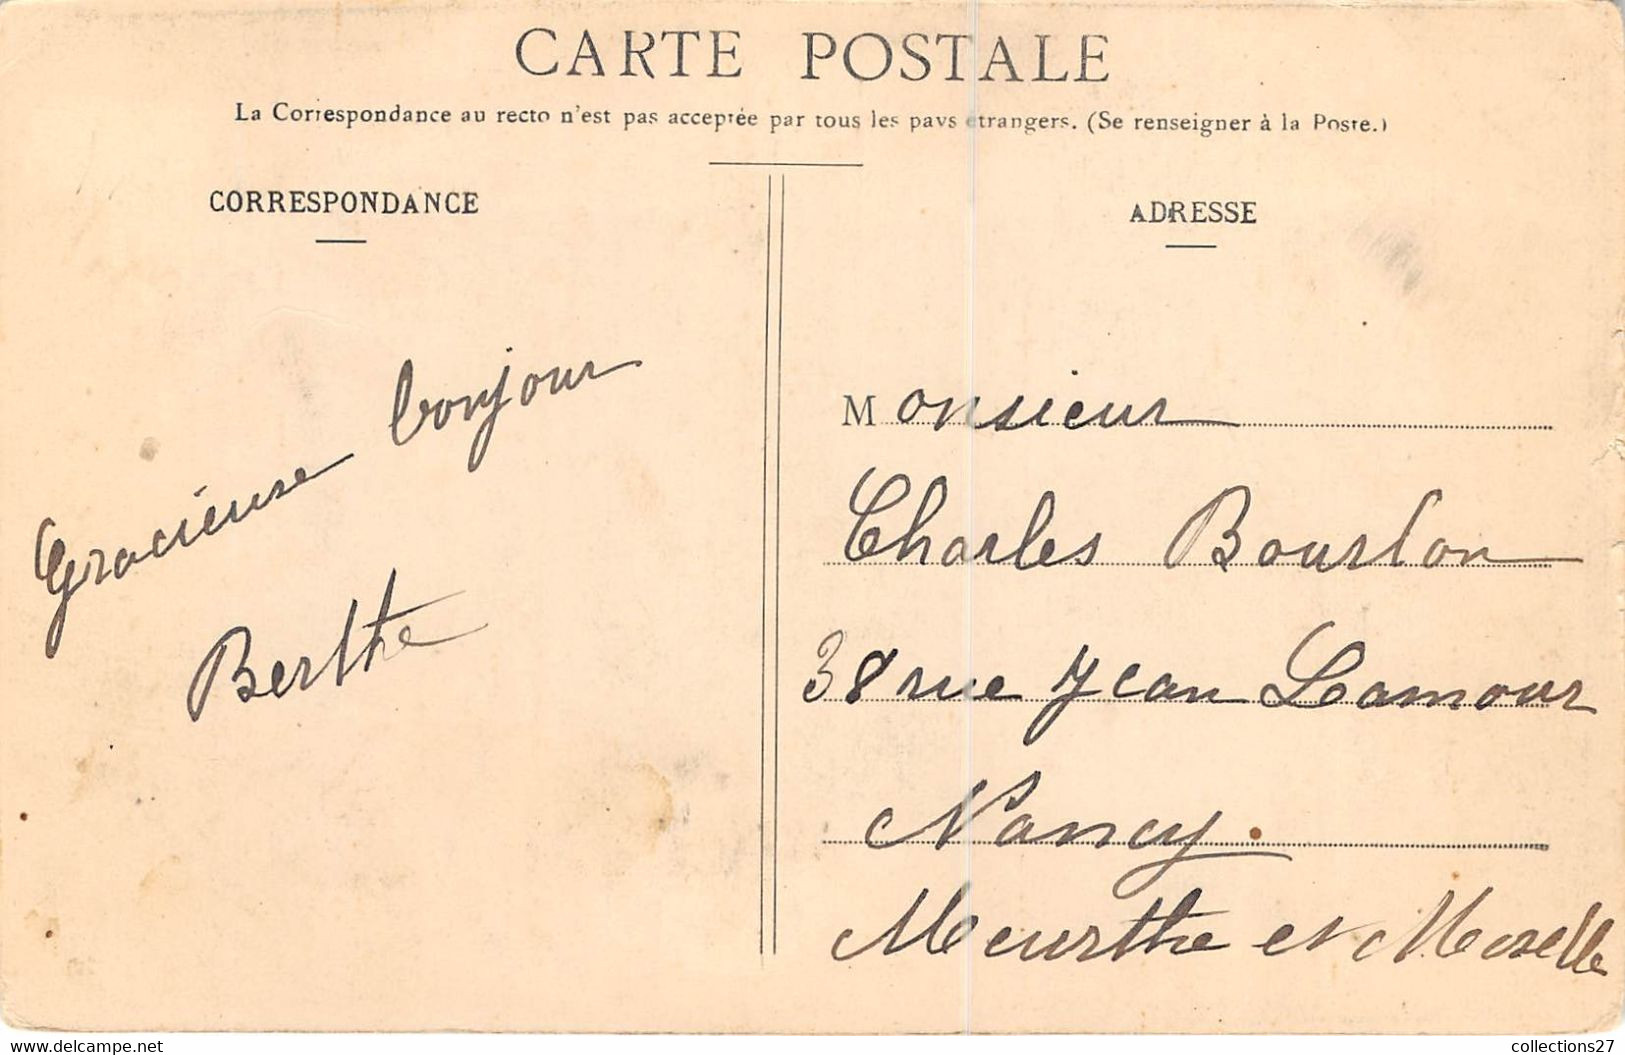 CARTE POSTALE
La Correspondance au recto n'est pas acceptée par tous les pays étrangers. (Se renseigner à la Poste.)
CORRESPONDANCE
Gracieuse bonjour
Berthe
ADRESSE
Monsieur
Charles Bourlon
38 rue Jean Lamour
Nancy.
Meurthe et Moselle
www.delcampe.net
collections27